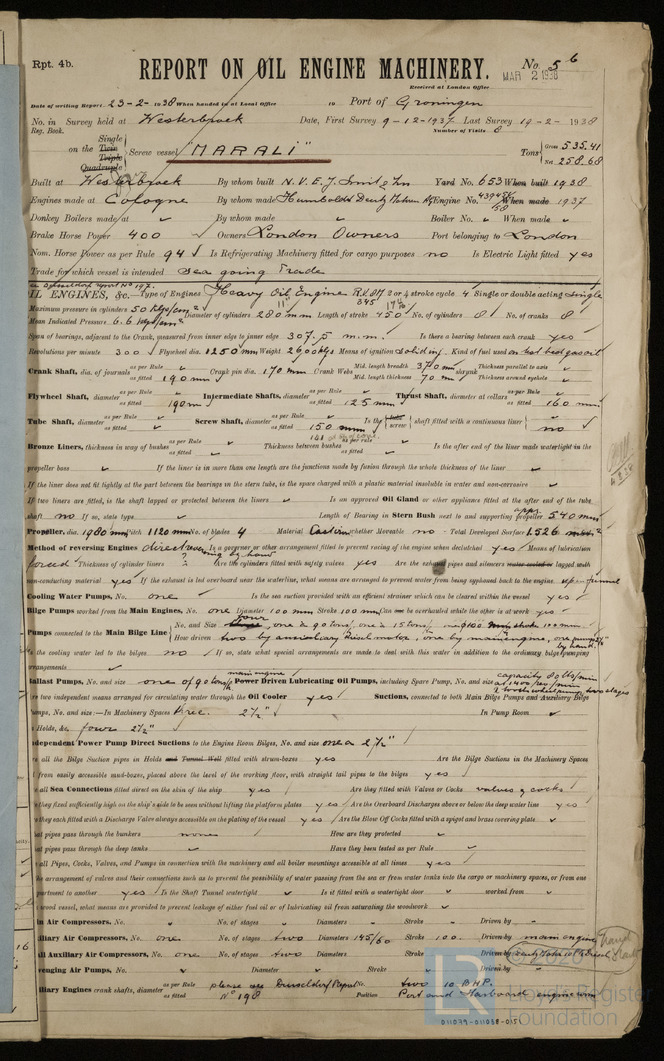 Rpt. 4b.
REPORT ON OIL ENGINE MACHINERY.
No. 56
Received at London Office
MAR 2 1938
Date of writing Report 23-2-1938 When handed in at Local Office 19 Port of Groningen
No. in Survey held at Westerbroek Date, First Survey 9-12-1937 Last Survey 19-2-1938
Reg. Book. Number of Visits 8
on the Single Twin Triple Quadruple Screw vessel "MARALI" Tons Gross 535.41 Net 258.68
Built at Westerbroek By whom built N.V. E.J. Smit & Zn Yard No. 653 When built 1938
Engines made at Cologne By whom made Humboldt Deutz Motoren AG Engine No. When made 1937
Donkey Boilers made at By whom made Boiler No. When made
Brake Horse Power 400 Owners London Owners Port belonging to London
Nom. Horse Power as per Rule 94 Is Refrigerating Machinery fitted for cargo purposes no Is Electric Light fitted yes
Trade for which vessel is intended Sea going Trade
IL ENGINES, &c.—Type of Engines Heavy Oil Engine R.V. 8M 345 2 or 4 stroke cycle 4 Single or double acting single
Maximum pressure in cylinders 50 kgs/cm² Diameter of cylinders 280 mm Length of stroke 450 No. of cylinders 8 No. of cranks 8
Mean Indicated Pressure 6.6 kgs/cm²
Span of bearings, adjacent to the Crank, measured from inner edge to inner edge 307.5 m.m. Is there a bearing between each crank yes
Revolutions per minute 300 Flywheel dia. 1250 mm Weight 2900 kgs Means of ignition solid inj. Kind of fuel used
Crank Shaft, dia. of journals as per Rule as fitted 190 mm Crank pin dia. 170 mm Crank Webs Mid. length breadth 370 mm Mid. length thickness 70 mm shrunk Thickness parallel to axis Thickness around eyehole
Flywheel Shaft, diameter as per Rule as fitted 190 m Intermediate Shafts, diameter as per Rule as fitted 125 mm Thrust Shaft, diameter at collars as per Rule as fitted 160 mm
Tube Shaft, diameter as per Rule as fitted Screw Shaft, diameter as per Rule as fitted 150 mm Is the tube screw shaft fitted with a continuous liner no
Bronze Liners, thickness in way of bushes as per Rule as fitted Thickness between bushes as per rule as fitted Is the after end of the liner made watertight in the
propeller boss If the liner is in more than one length are the junctions made by fusion through the whole thickness of the liner
If the liner does not fit tightly at the part between the bearings in the stern tube, is the space charged with a plastic material insoluble in water and non-corrosive
If two liners are fitted, is the shaft lapped or protected between the liners Is an approved Oil Gland or other appliance fitted at the after end of the tube
shaft no If so, state type Length of Bearing in Stern Bush next to and supporting propeller appr. 540 mm
Propeller, dia. 1980 mm Pitch 1120 mm No. of blades 4 Material Cast iron whether Moveable no Total Developed Surface 1.526
Method of reversing Engines direct reversing by hand Is a governor or other arrangement fitted to prevent racing of the engine when declutched yes Means of lubrication
forced Thickness of cylinder liners ? Are the cylinders fitted with safety valves yes Are the exhaust pipes and silencers water cooled or lagged with
non-conducting material yes If the exhaust is led overboard near the waterline, what means are arranged to prevent water from being syphoned back to the engine. up in funnel
Cooling Water Pumps, No. one Is the sea suction provided with an efficient strainer which can be cleared within the vessel yes
Bilge Pumps worked from the Main Engines, No. one Diameter 100 mm Stroke 100 mm Can one be overhauled while the other is at work yes
Pumps connected to the Main Bilge Line No. and Size four, one à 90 tons/, one à 15 tons/, one ø100 stroke 100 mm.
How driven two by auxiliary diesel motor, one by main engine, one pump 2½" by hand.
Is the cooling water led to the bilges no If so, state what special arrangements are made to deal with this water in addition to the ordinary bilge pumping
arrangements
Ballast Pumps, No. and size one of 90 tons/h Power Driven Lubricating Oil Pumps, including Spare Pump, No. and size main engine capacity
Are two independent means arranged for circulating water through the Oil Cooler yes Suctions, connected to both Main Bilge Pumps and Auxiliary Bilge
Pumps, No. and size:—In Machinery Spaces three 2½" In Pump Room
In Holds, &c. four 2½"
Independent Power Pump Direct Suctions to the Engine Room Bilges, No. and size one à 2½"
Are all the Bilge Suction pipes in Holds and Tunnel Well fitted with strum-boxes yes Are the Bilge Suctions in the Machinery Spaces
led from easily accessible mud-boxes, placed above the level of the working floor, with straight tail pipes to the bilges yes
Are all Sea Connections fitted direct on the skin of the ship yes Are they fitted with Valves or Cocks valves & cocks
Are they fixed sufficiently high on the ship's side to be seen without lifting the platform plates yes Are the Overboard Discharges above or below the deep water line yes
Are they each fitted with a Discharge Valve always accessible on the plating of the vessel yes Are the Blow Off Cocks fitted with a spigot and brass covering plate
What pipes pass through the bunkers none How are they protected
What pipes pass through the deep tanks Have they been tested as per Rule
Are all Pipes, Cocks, Valves, and Pumps in connection with the machinery and all boiler mountings accessible at all times yes
Is the arrangement of valves and their connections such as to prevent the possibility of water passing from the sea or from water tanks into the cargo or machinery spaces, or from one
compartment to another yes Is the Shaft Tunnel watertight Is it fitted with a watertight door worked from
If a wood vessel, what means are provided to prevent leakage of either fuel oil or of lubricating oil from saturating the woodwork
Main Air Compressors, No. No. of stages Diameters Stroke Driven by
Auxiliary Air Compressors, No. one No. of stages two Diameters 145/60 Stroke 100 Driven by main engine
Small Auxiliary Air Compressors, No. one No. of stages two Diameters Stroke Driven by
Scavenging Air Pumps, No. Diameter Stroke Driven by
Auxiliary Engines crank shafts, diameter as per Rule as fitted please see Dusseldorf Report No 198 No. two 10 B.H.P. Position Port and Starboard engine room
© 2026
LR
Lloyd's Register
Foundation
011079-011088-0151